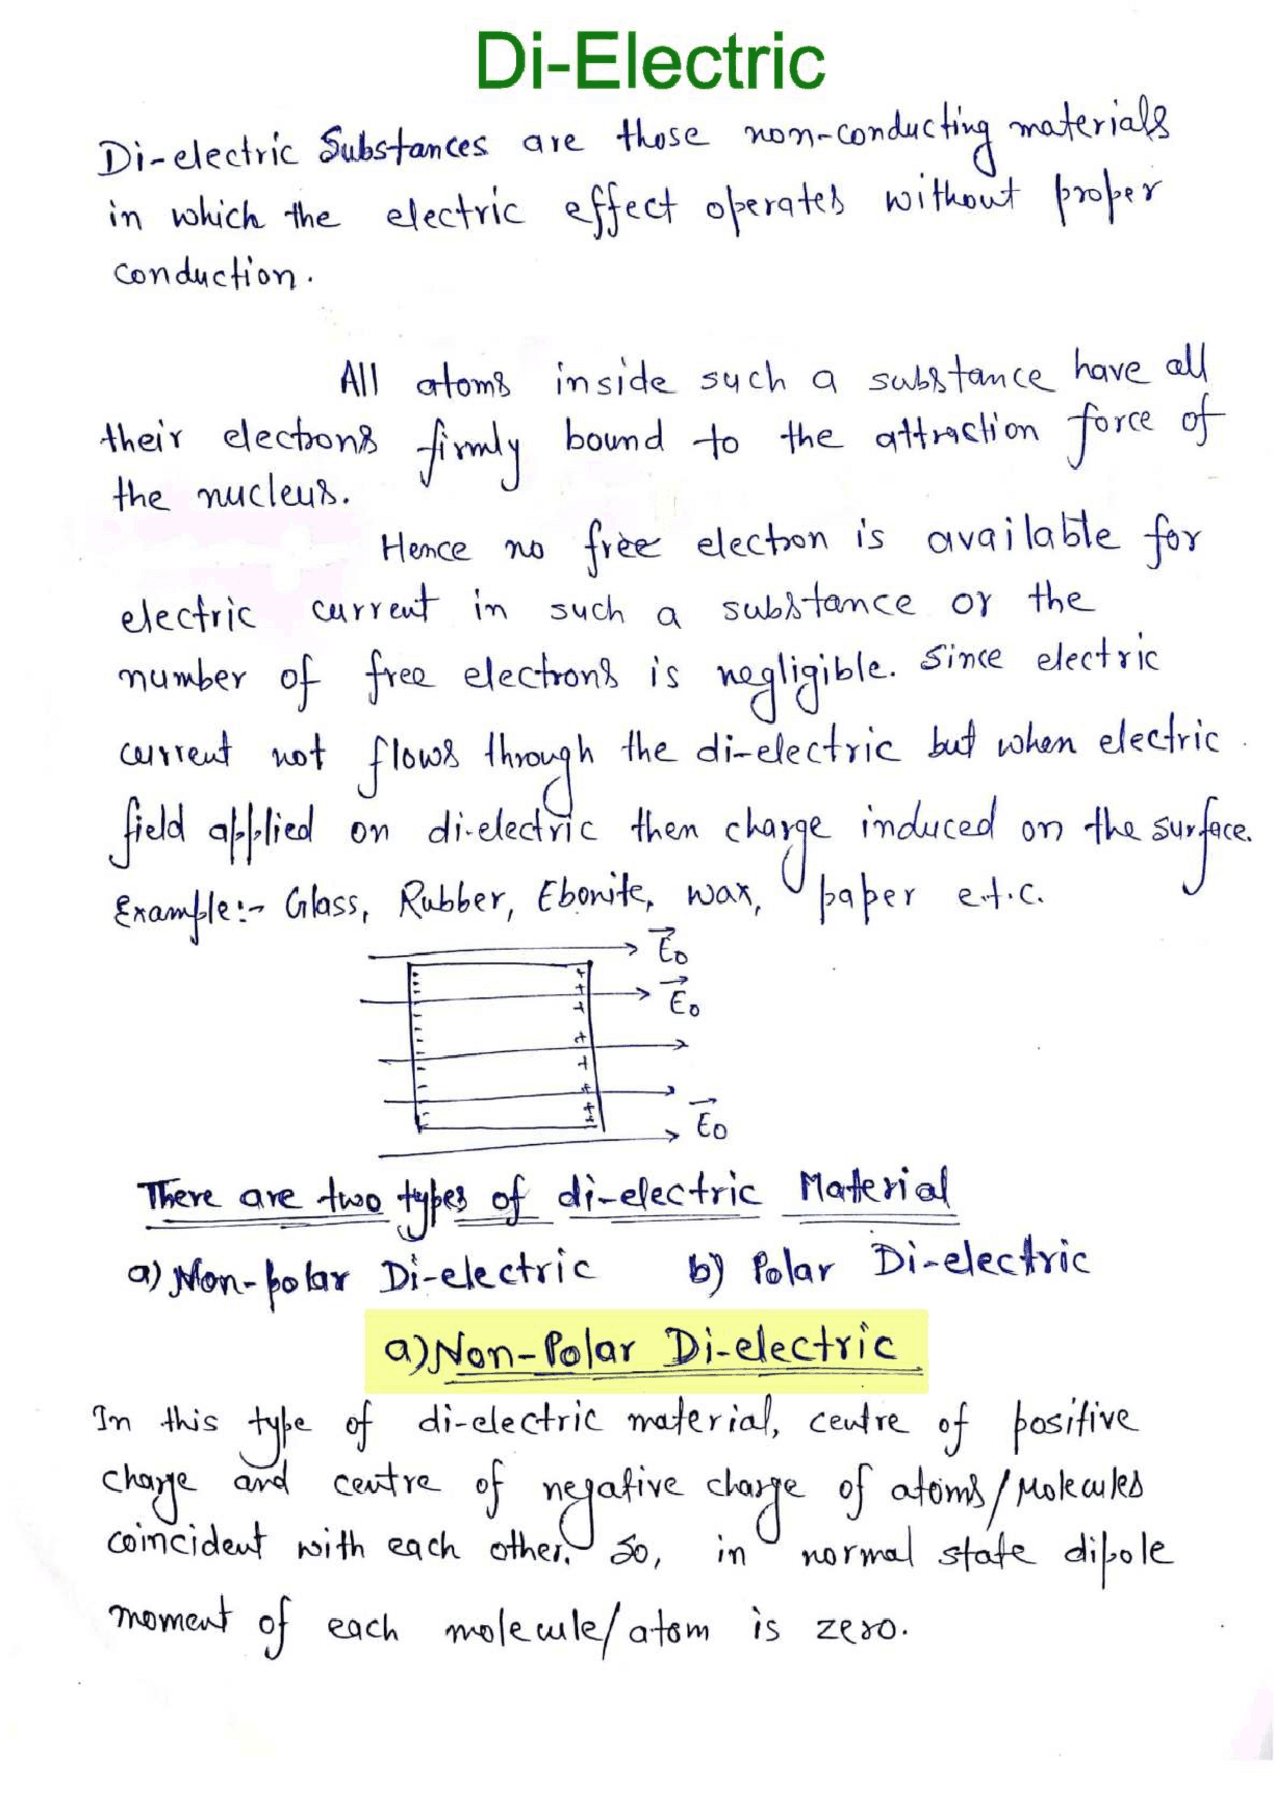 Di-Electric
Di-electric Substances are those non-conducting materials
in which the electric effect operates without proper
conduction.
All atoms inside such a substance have all
their electrons firmly bound to the attraction force of
the nucleus.
Hence no free electron is available for
electric current in such a substance or the
number of free electrons is negligible. Since electric
current not flows through the di-electric but when electric
field applied on di-electric then charge induced on the surface.
Example:- Glass, Rubber, Ebonite, wax, paper e.t.c.
E₀
E₀
E₀
There are two types of di-electric Material
a) Non-polar Di-electric b) Polar Di-electric
a) Non-Polar Di-electric
In this type of di-electric material, centre of positive
charge and centre of negative charge of atoms/Molecules
coincident with each other. So, in normal state dipole
moment of each molecule/atom is zero.